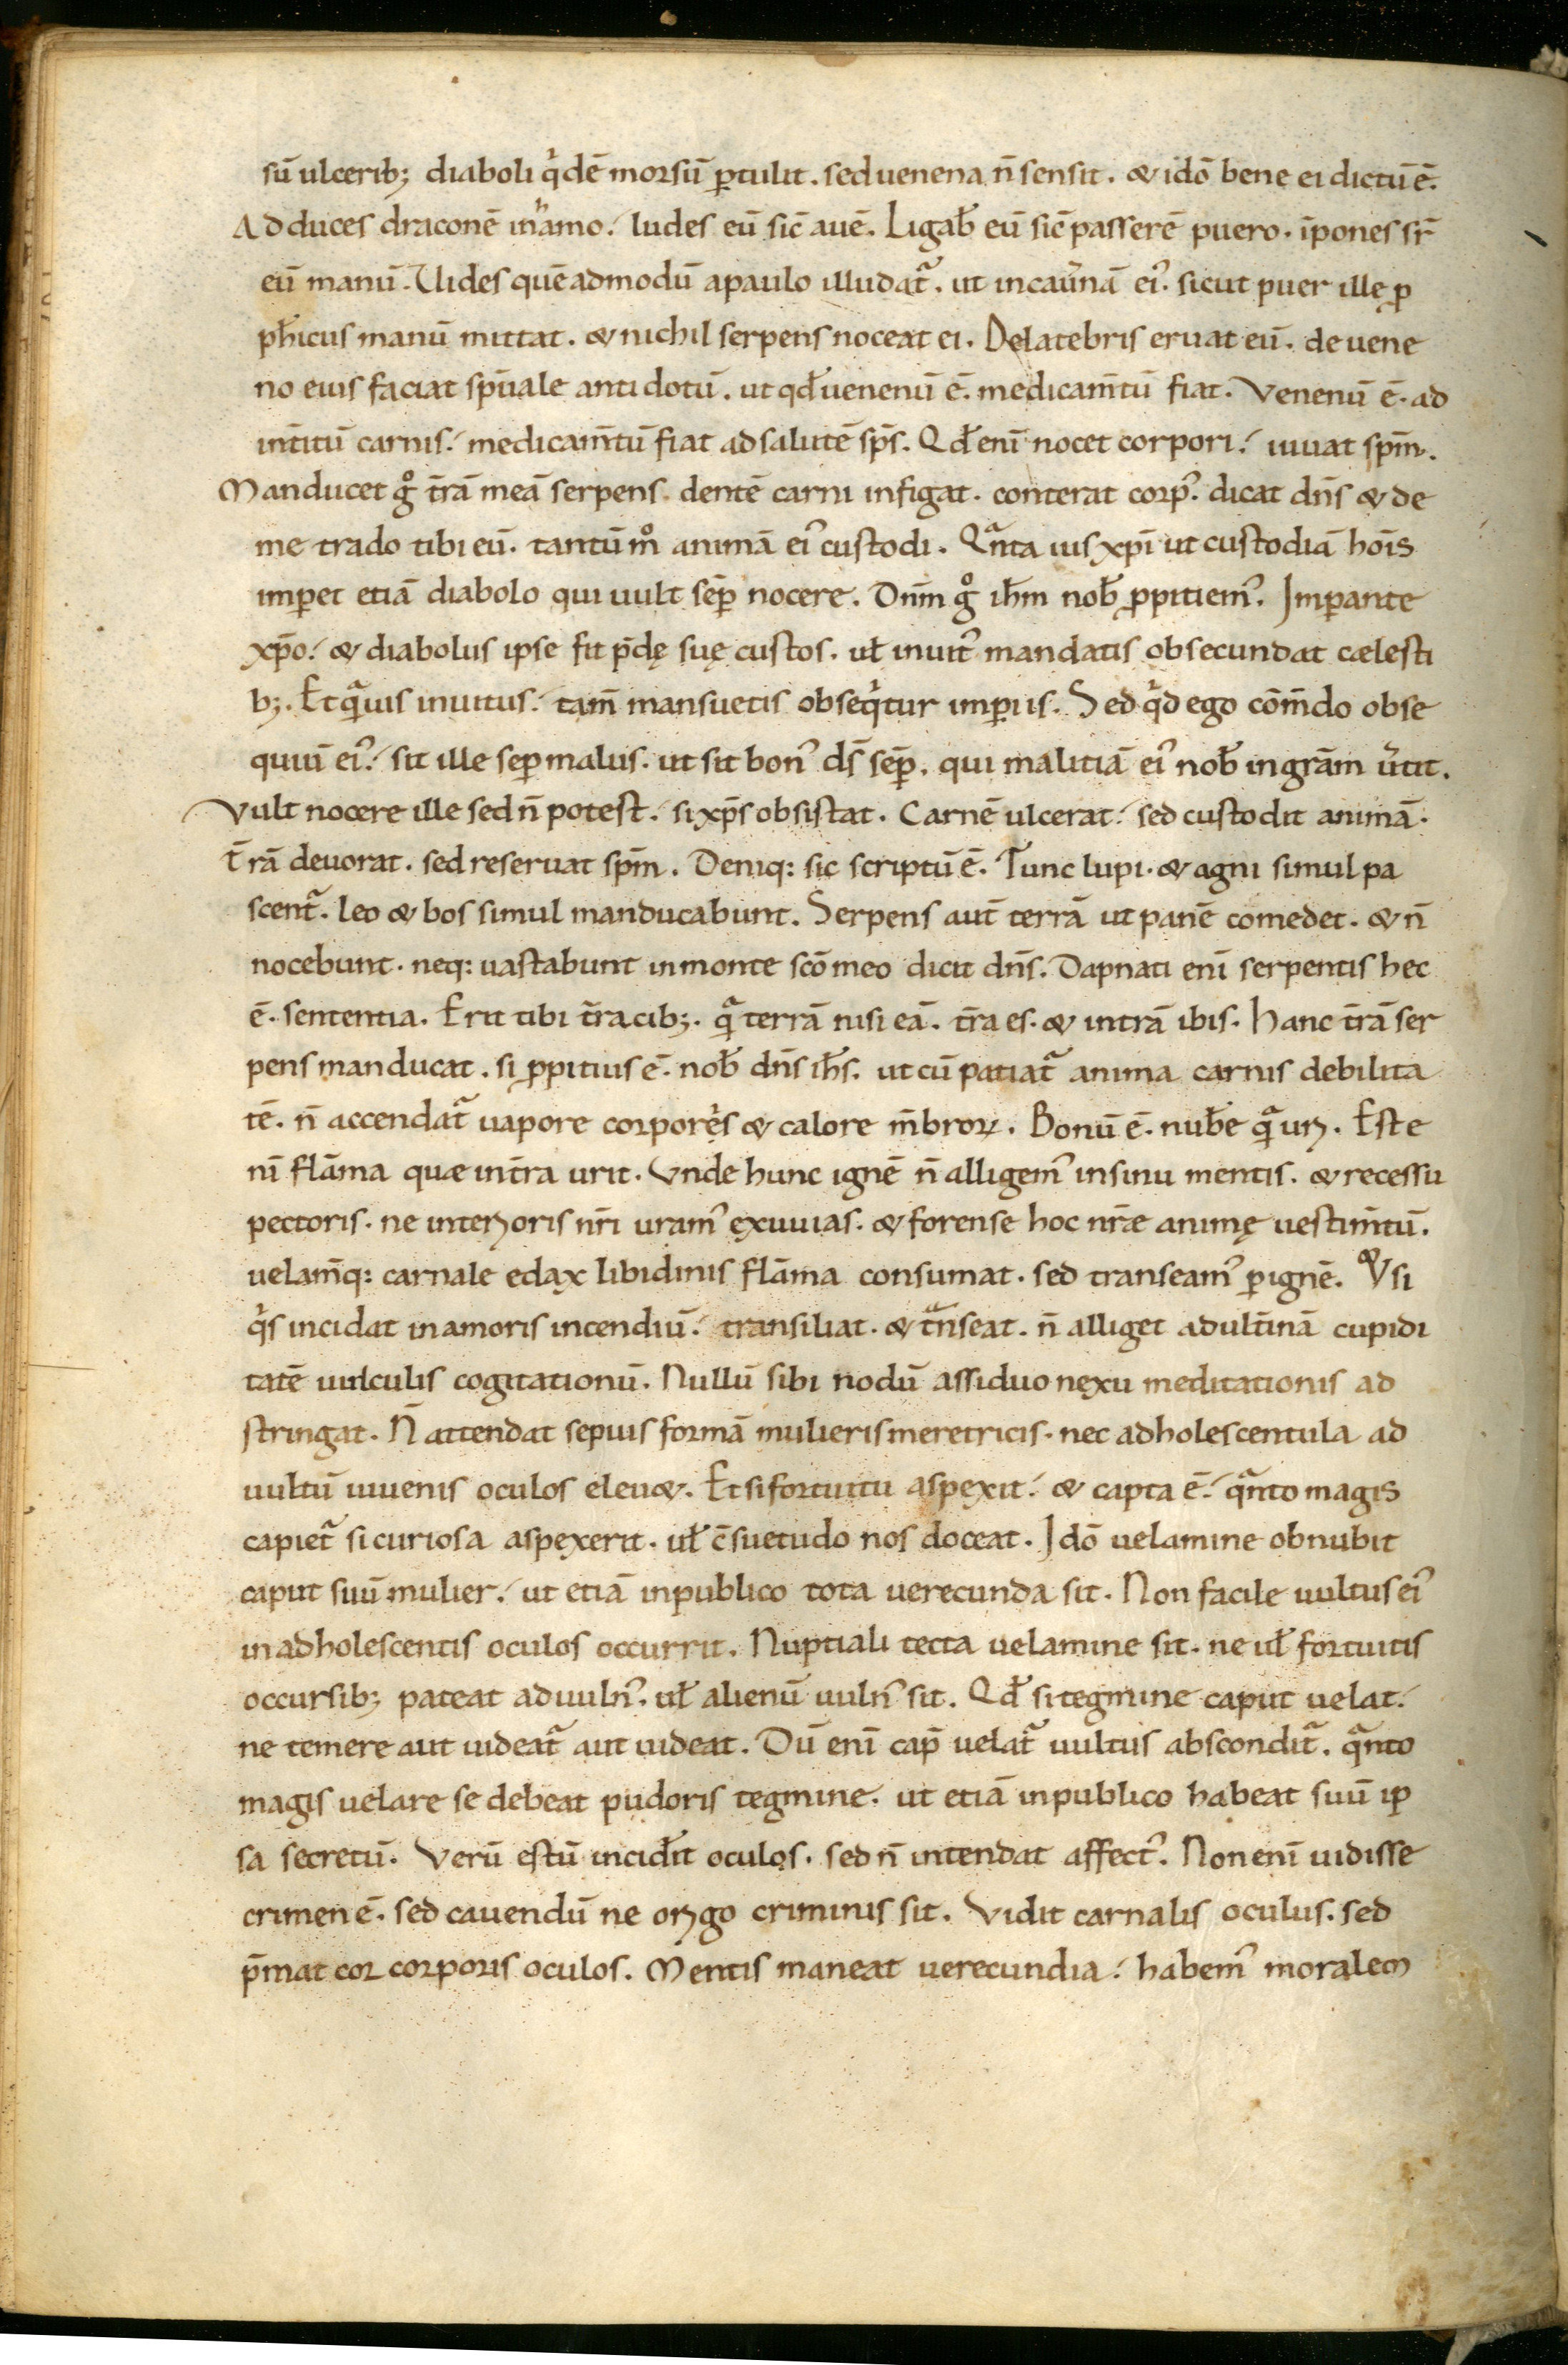 sū ulcerib; diaboli qͥdē morsū ꝑtulit. sed uenena n̄ sensit. & idō bene ei dictū ē.
Adduces draconē in hamo. ludes eū sic̄ auē. Ligab̄ eū sic̄ passerē puero. īpones sr̄
eū manū. Uides quēadmodū a paulo illudatᷓ. ut in cau̾nā ei᾽. sicut puer ille ꝓ
ph̄icus manū mittat. & nichil serpens noceat ei. De latebris eruat eū. de uene
no euis faciat sp̄uale antidotū. ut qđ uenenū ē. medicam̄tū fiat. Venenū ē. ad
int̄itū carnis. medicam̄tū fiat ad salutē sp̄s. Qđ enī nocet corpori. iuuat sp̄m.
Manducet gͦ t̄rā meā serpens. dentē carni infigat. conterat corp᾽. dicat dn̄s & de
me trado tibi eū. tantū mͦ animā ei᾽ custodi. Qᷓnta uis xp̄i ut custodiā hoīs
imꝑet etiā diabolo qui uult sēꝑ nocere. Dn̄m gͦ ih̄m nob̄ ꝓpitiem᾽. Imꝑante
xp̄o. & diabolus ipse fit p̄dę suę custos. ul̄ inuit᾽ mandatis obsecundat cælesti
b;. Et qᷓuis inuitus. tam̄ mansuetis obseqͥtur imꝑiis. Sed qͥd ego cōm̄do obse
quiū ei᾽. sit ille seꝑ malus. ut sit bon᾽ ds̄ sēꝑ. qui malitiā ei᾽ nob̄ in grām u̾tit.
Vult nocere ille sed n̄ potest. si xp̄s obsistat. Carnē ulcerat. sed custodit animā.
t̄rā deuorat. sed reseruat sp̄m. Deniq: sic scriptū ē. Tunc lupi. & agni simul pa
scentᷓ. leo & bos simul manducabunt. Serpens aut̄ terrā ut panē comedet. & n̄
nocebunt. neq: uastabunt in monte scō meo dicit dn̄s. Dapnati enī serpentis hec
ē. sententia. Erit tibi t̄ra cib;. qᷓ terrā nisi eā. t̄ra es. & in t̄rā ibis. Hanc t̄rā ser
pens manducat. si ꝓpitius ē. nob̄ dn̄s ih̄s. ut cū patiatᷓ anima carnis debilita
tē. n̄ accendatᷓ uapore corporeͥs & calore m̄broꝝ. Bonū ē. nub̄e qᷓ uri. Est e
nī flāma quæ int̄ra urit. Vnde hunc ignē n̄ alligem᾽ in sinu mentis. & recessu
pectoris. ne interioris nr̄i uram᾽ exuuias. & forense hoc nr̄æ animę uestim̄tū.
uelam̄q: carnale edax libidinis flāma consumat. sed transeam᾽ ꝑ ignē. & Vsi
qͥs incidat in amoris incendiū. transiliat. & tᷓnseat. n̄ alliget adult̄inā cupidi
tatē uinculis cogitationū. Nullū sibi nodū assiduo nexu meditationis ad
stringat. N̄ attendat sepius formā mulieris meretricis. nec adholescentula ad
uultū iuuenis oculos eleu&. Et si fortuitu aspexit. & capta ē. qᷓnto magis
capietᷓ si curiosa aspexerit. ul̄ c̄suetudo nos doceat. Idō uelamine obnubit
caput suū mulier. ut etiā in publico tota uerecunda sit. Non facile uultus ei᾽
in adholescentis oculos occurrit. Nuptiali tecta uelamine sit. ne ul̄ fortuitis
occursib; pateat ad uuln᾽. ul̄ alienū uuln᾽ sit. Qđ si tegmine caput uelat.
ne temere aut uideatᷓ aut uideat. Dū enī cap̄ uelatᷓ uultus absconditᷓ. qᷓnto
magis uelare se debeat pudoris tegmine. ut etiā in publico habeat suū ip
sa secretū. Verū estū incider̄it oculos. sed n̄ intendat affect᾽. Non enī uidisse
crimen ē. sed cauendū ne origo criminis sit. Vidit carnalis oculus. sed
p̄mat cor corporis oculos. Mentis maneat uerecundia. habem᾽ moralem